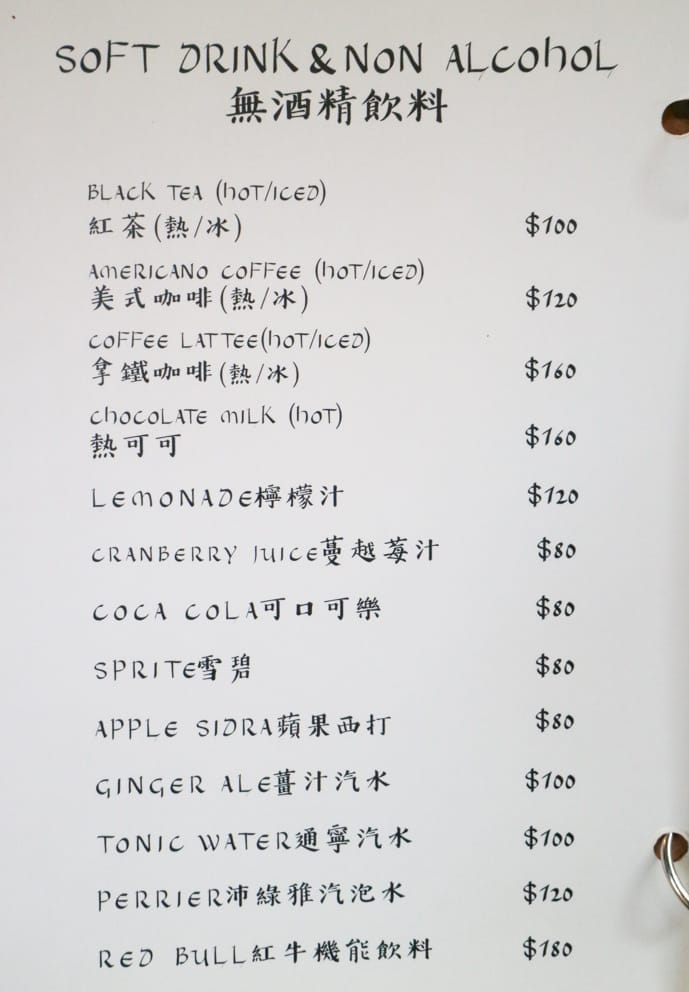 SOFT DRINK & NON ALCOHOL
無酒精飲料
BLACK TEA (HOT/ICED)
紅茶(熱/冰) $100
AMERICANO COFFEE (HOT/ICED)
美式咖啡(熱/冰) $120
COFFEE LATTEE(HOT/ICED)
拿鐵咖啡(熱/冰) $160
CHOCOLATE MILK (HOT)
熱可可 $160
LEMONADE檸檬汁 $120
CRANBERRY JUICE蔓越莓汁 $80
COCA COLA可口可樂 $80
SPRITE雪碧 $80
APPLE SIDRA蘋果西打 $80
GINGER ALE薑汁汽水 $100
TONIC WATER通寧汽水 $100
PERRIER沛綠雅汽泡水 $120
RED BULL紅牛機能飲料 $180